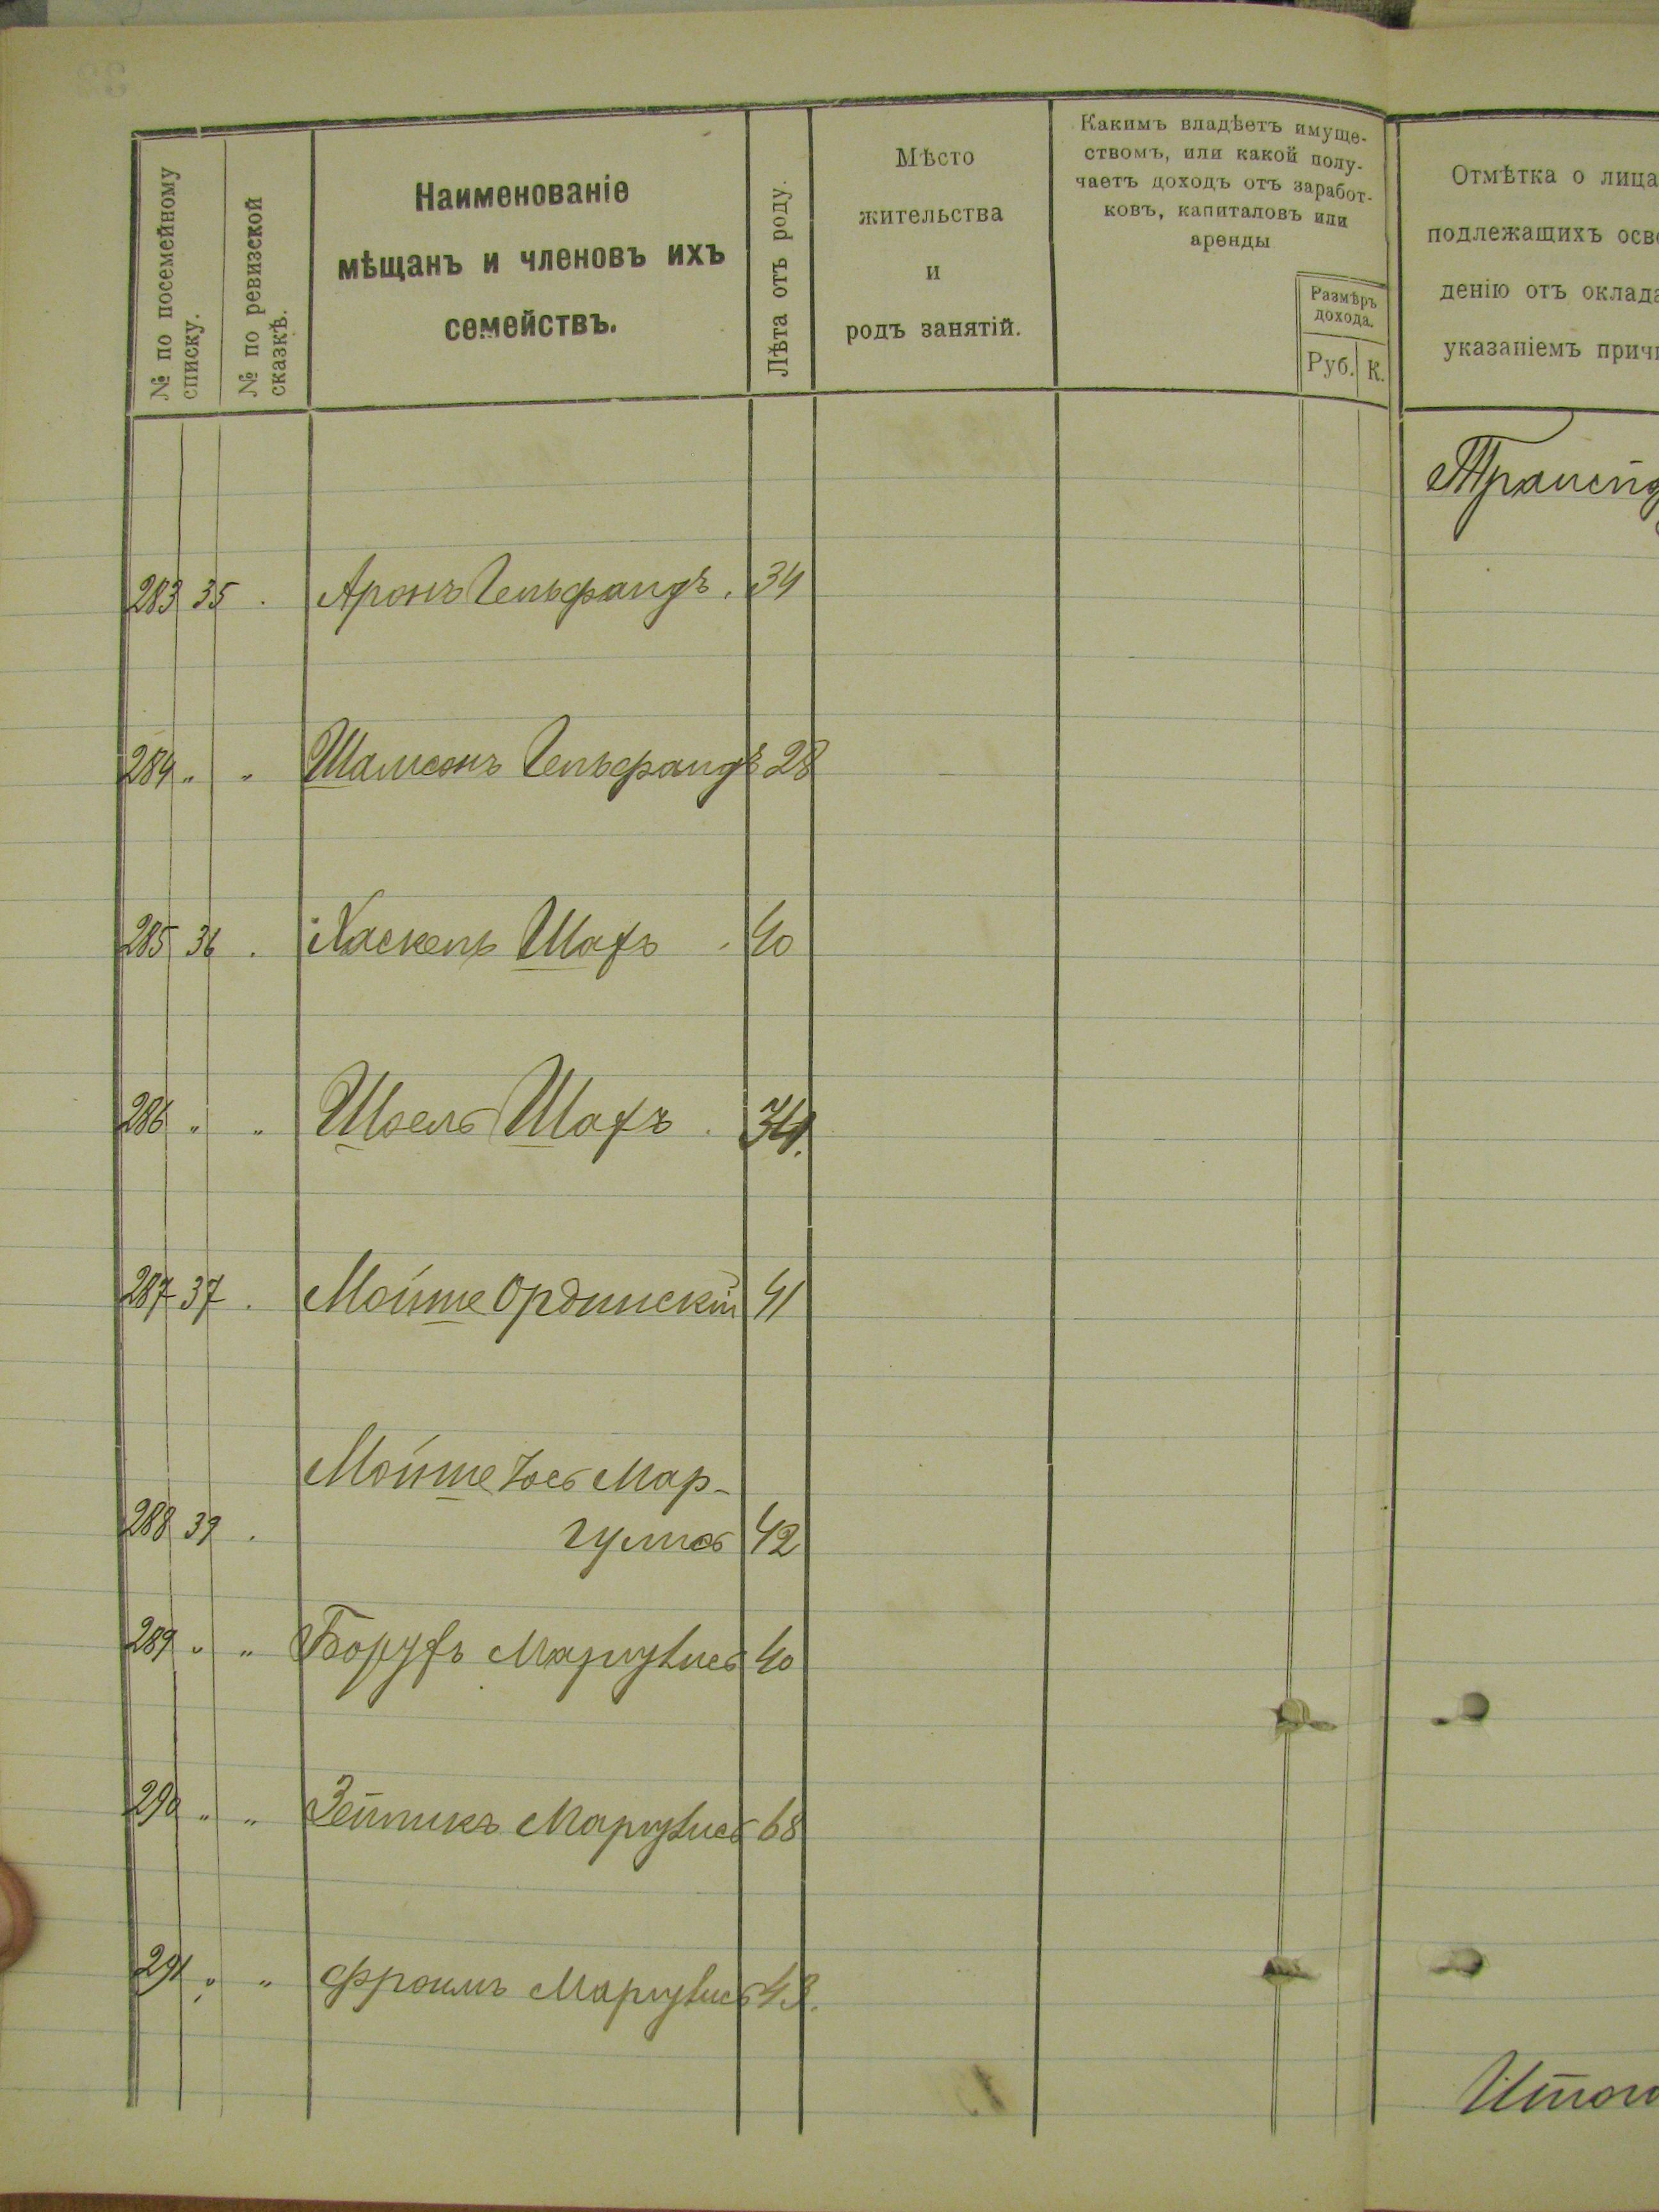 № по посемейному списку.
№ по ревизской сказкѣ.
Наименованіе
мѣщанъ и членовъ ихъ
семействъ.
Лѣта отъ роду.
Мѣсто
жительства
и
родъ занятій.
Какимъ владѣетъ имуще-
ствомъ, или какой полу-
чаетъ доходъ отъ заработ-
ковъ, капиталовъ или
аренды
Размѣръ
дохода.
Руб. К.
Отмѣтка о лица
подлежащихъ осво
денію отъ оклада
указаніемъ причи
Трансп
283 35 . Аронъ Гельфандъ . 34
284 " " Шамсонъ Гельфандъ 28
285 36 . Хаскель Шахъ . 40
286 " " Шоель Шахъ . 34.
287 37 . Мойше Ординскій 41
Мойше Іось Мар-
288 39 . гулисъ 42
289 " " Борухъ Маргулисъ 40
290 " " Зейликъ Маргулисъ 68
291 " " Фроимъ Маргулисъ 43.
Итого